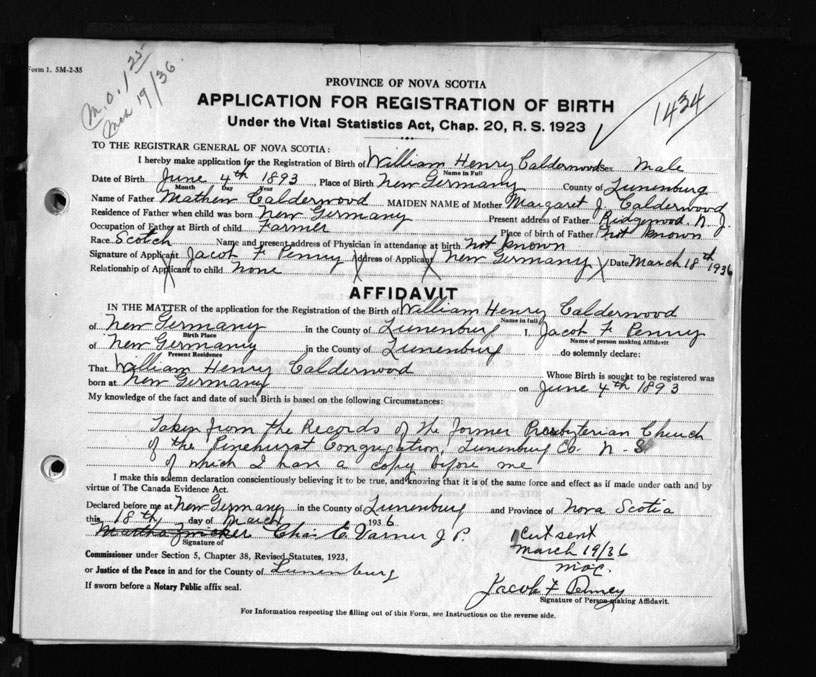 Form 1. 5M-2-35
M.O. 1 25
Mar 19/36.
PROVINCE OF NOVA SCOTIA
APPLICATION FOR REGISTRATION OF BIRTH
Under the Vital Statistics Act, Chap. 20, R. S. 1923
1434
TO THE REGISTRAR GENERAL OF NOVA SCOTIA:
I hereby make application for the Registration of Birth of William Henry Calderwood Sex Male
Name in Full
Date of Birth June 4th 1893 Place of Birth New Germany County of Lunenburg
Month Day Year
Name of Father Mathew Calderwood MAIDEN NAME of Mother Margaret J. Calderwood
Residence of Father when child was born New Germany Present address of Father Ridgewood, N. J.
Occupation of Father at Birth of child Farmer Place of birth of Father not known
Race Scotch Name and present address of Physician in attendance at birth not known
Signature of Applicant Jacob F Penny Address of Applicant New Germany Date March 18th 1936
Relationship of Applicant to child None
AFFIDAVIT
IN THE MATTER of the application for the Registration of the Birth of William Henry Calderwood
Name in full
of New Germany in the County of Lunenburg I, Jacob F Penny
Birth Place Name of person making Affidavit
of New Germany in the County of Lunenburg do solemnly declare:
Present Residence
That William Henry Calderwood Whose Birth is sought to be registered was
born at New Germany on June 4th 1893
My knowledge of the fact and date of such Birth is based on the following Circumstances:
Taken from the Records of the former Presbyterian Church
of the Pinehurst Congregation, Lunenburg Co. N-S
of which I have a copy before me
I make this solemn declaration conscientiously believing it to be true, and knowing that it is of the same force and effect as if made under oath and by
virtue of The Canada Evidence Act.
Declared before me at New Germany in the County of Lunenburg and Province of Nova Scotia
this 18th day of March 1936
Martha Zwicker Chas E. Varner J P.
Signature of
Cert sent
March 19/36
Commissioner under Section 5, Chapter 38, Revised Statutes, 1923,
or Justice of the Peace in and for the County of Lunenburg
If sworn before a Notary Public affix seal.
Jacob F Penny
Signature of Person making Affidavit.
For Information respecting the filling out of this Form, see Instructions on the reverse side.